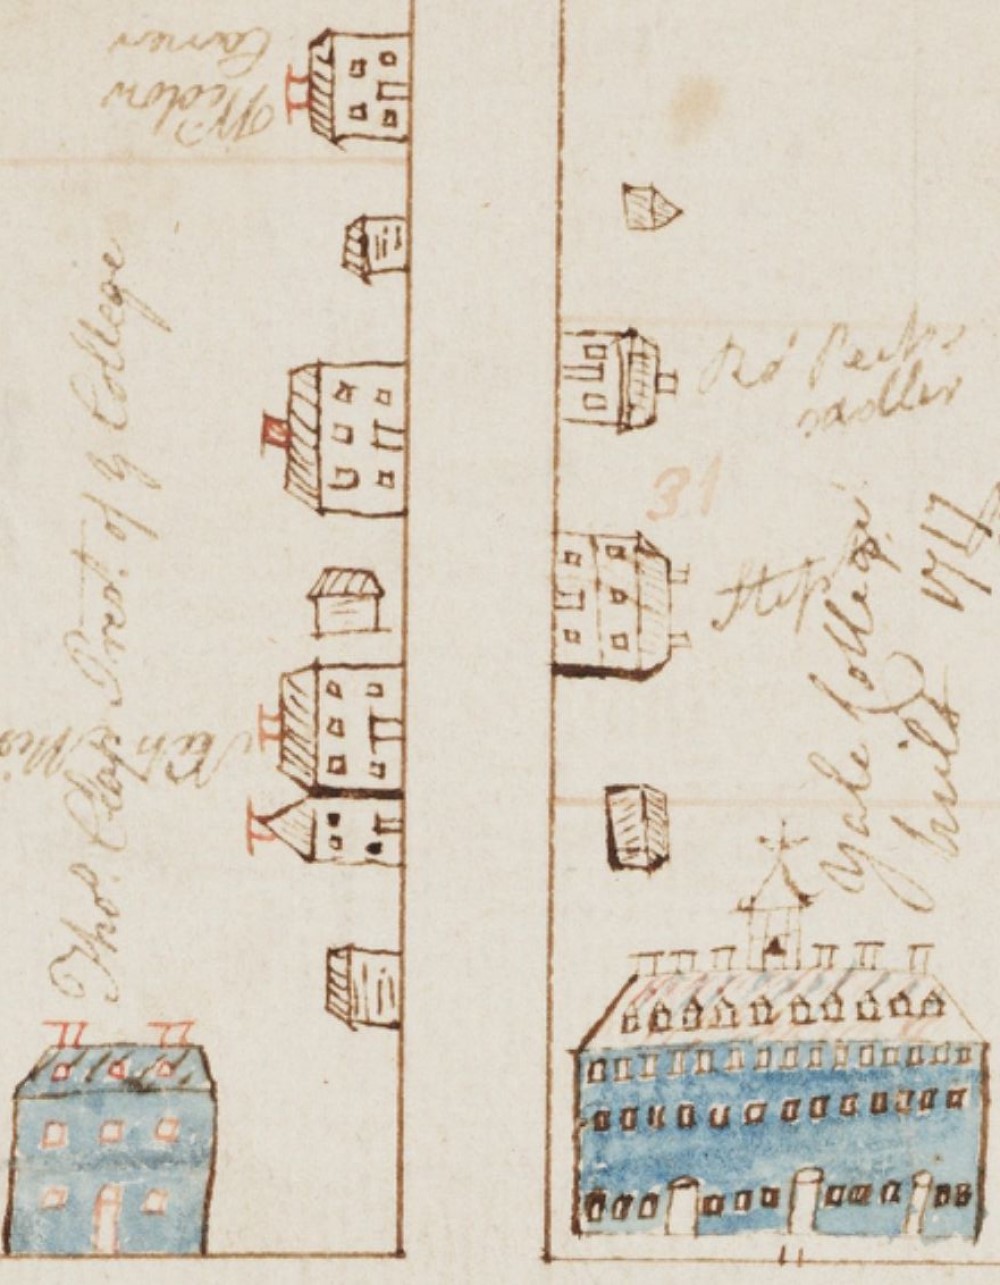 Widow
Carner
Thos. Clap Prest. of Y College
Rd Perk
sadler
31
Yale College
built 1717